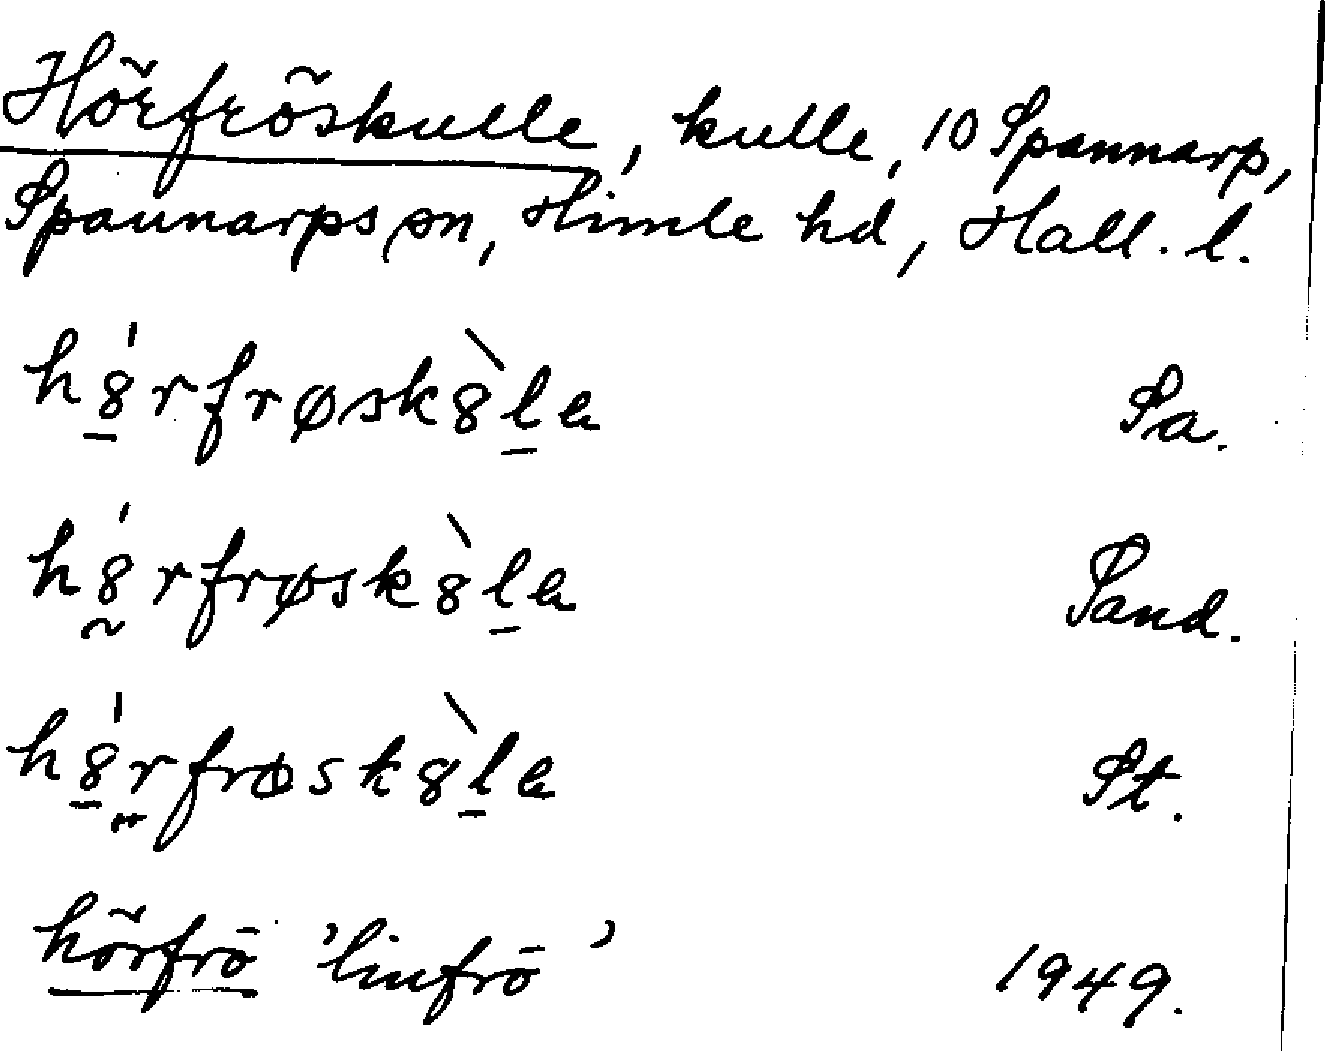 Hörfröskulle, kulle, 10 Spannarp,
Spannarps sn, Himle hd, Hall. l.
hȣ̱́rfrøskȣ̀ḻa Sa.
hȣ̰́rfrøskȣ̀ḻa Sand.
hȣ̱́r̤frøskȣ̀ḻa St.
hörfrö 'linfrö' 1949.